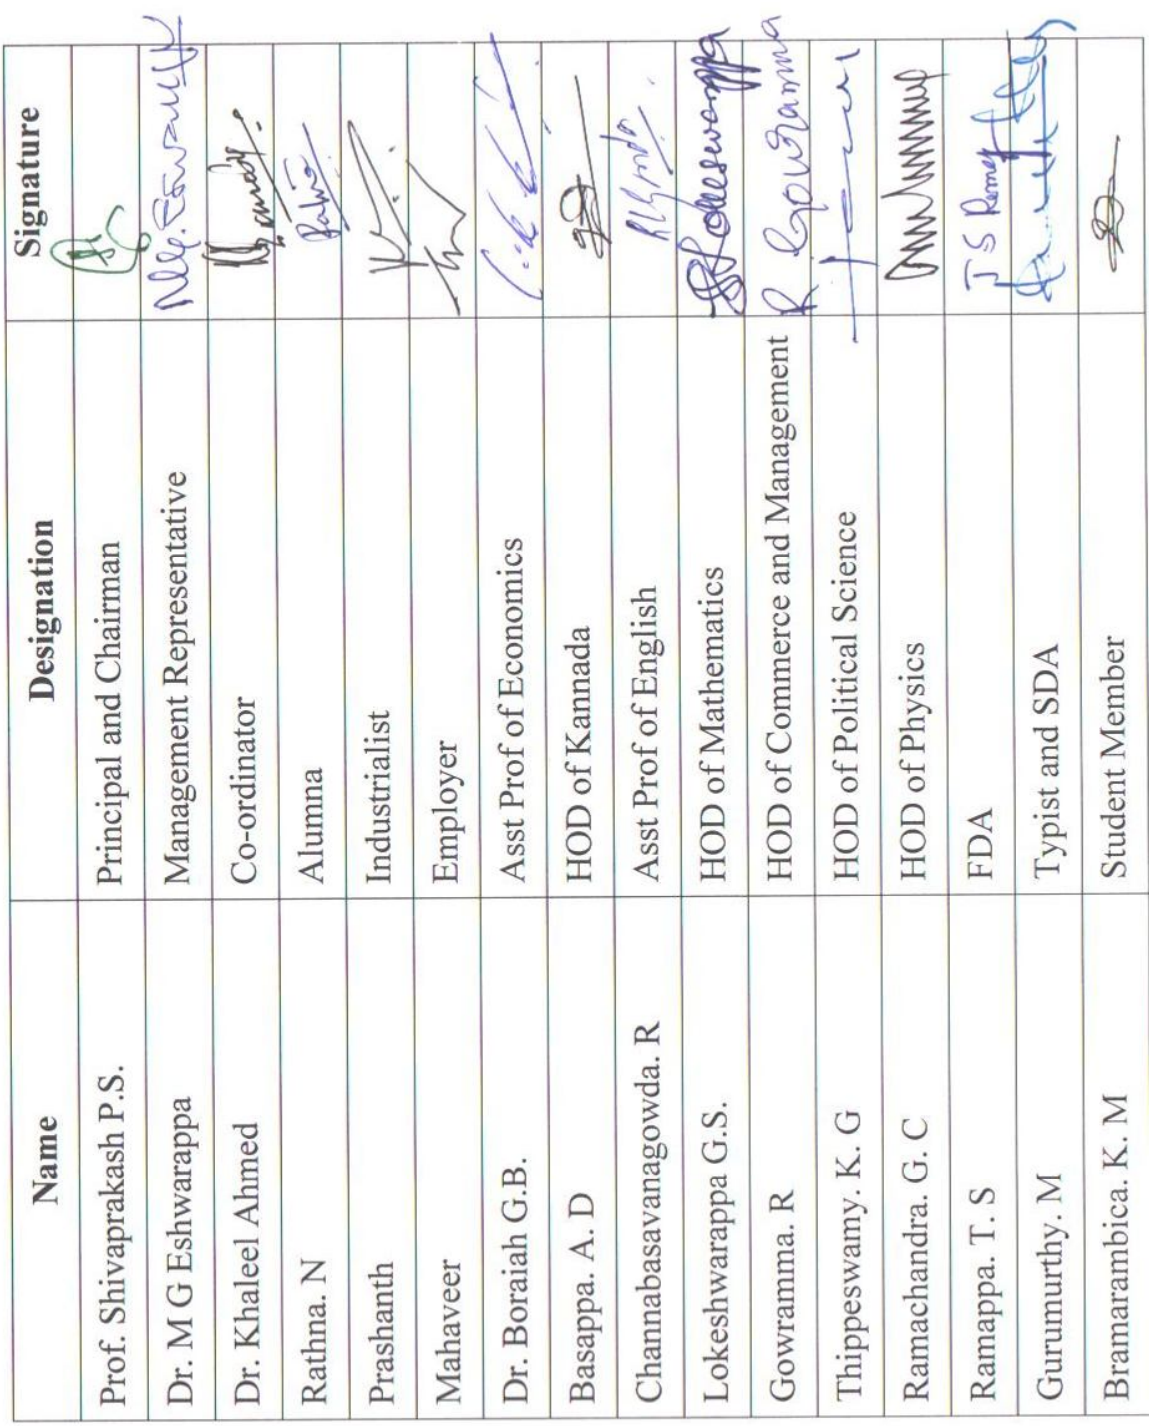 Name Designation Signature
Prof. Shivaprakash P.S. Principal and Chairman
Dr. M G Eshwarappa Management Representative
Dr. Khaleel Ahmed Co-ordinator
Rathna. N Alumna
Prashanth Industrialist
Mahaveer Employer
Dr. Boraiah G.B. Asst Prof of Economics
Basappa. A. D HOD of Kannada
Channabasavanagowda. R Asst Prof of English
Lokeshwarappa G.S. HOD of Mathematics
Gowramma. R HOD of Commerce and Management R Gowramma
Thippeswamy. K. G HOD of Political Science
Ramachandra. G. C HOD of Physics
Ramappa. T. S FDA
Gurumurthy. M Typist and SDA
Bramarambica. K. M Student Member